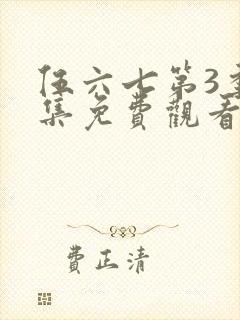 伍六七第3季
集免費觀看
費正清